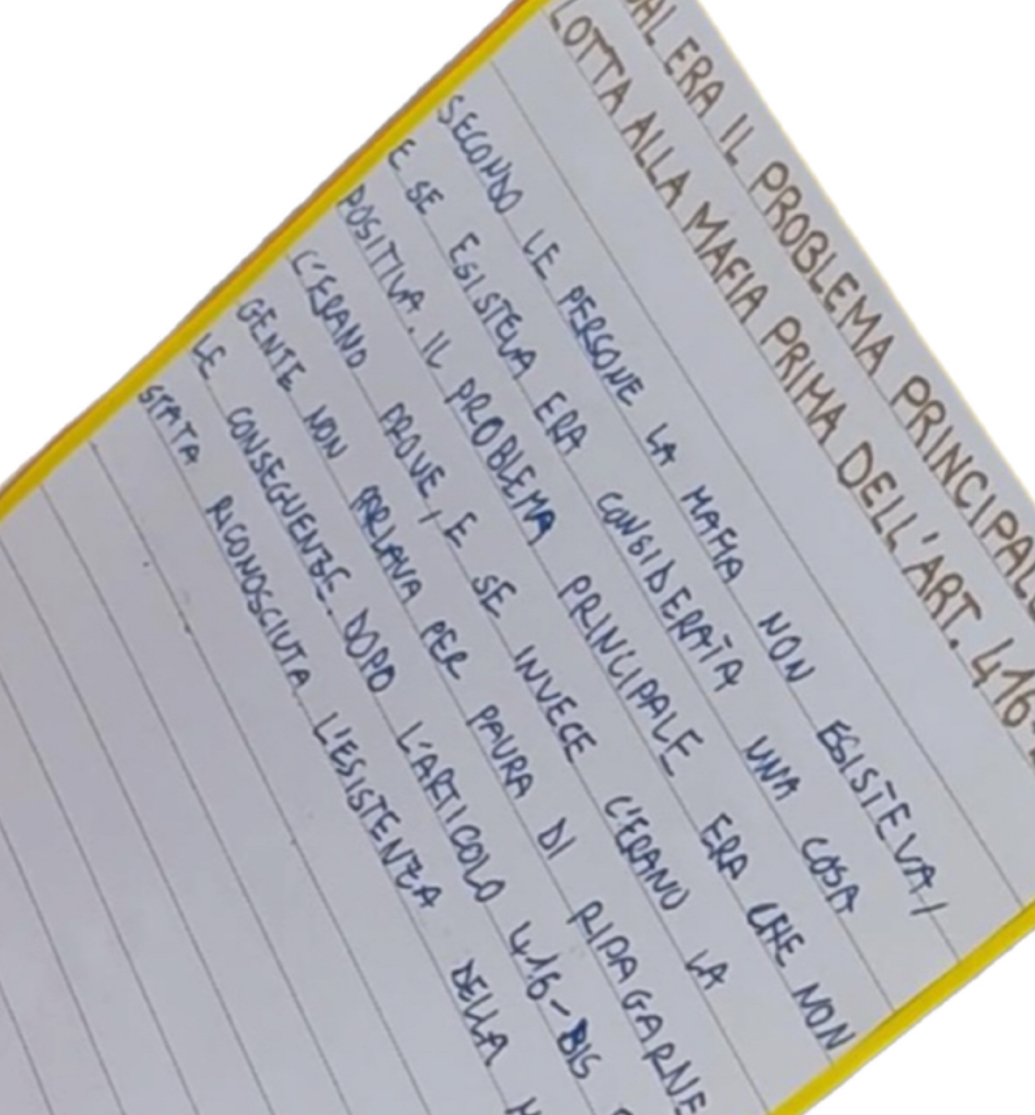 ERA IL PROBLEMA PRINCIPALE
LOTTA ALLA MAFIA PRIMA DELL'ART. 416
SECONDO LE PERSONE LA MAFIA NON ESISTEVA,
E SE ESISTEVA ERA CONSIDERATA UNA COSA
POSITIVA. IL PROBLEMA PRINCIPALE ERA CHE NON
C'ERANO PROVE, E SE INVECE C'ERANO LA
GENTE NON PARLAVA PER PAURA DI RIPAGARNE
LE CONSEGUENZE. DOPO L'ARTICOLO 416-BIS
STATA RICONOSCIUTA L'ESISTENZA DELLA